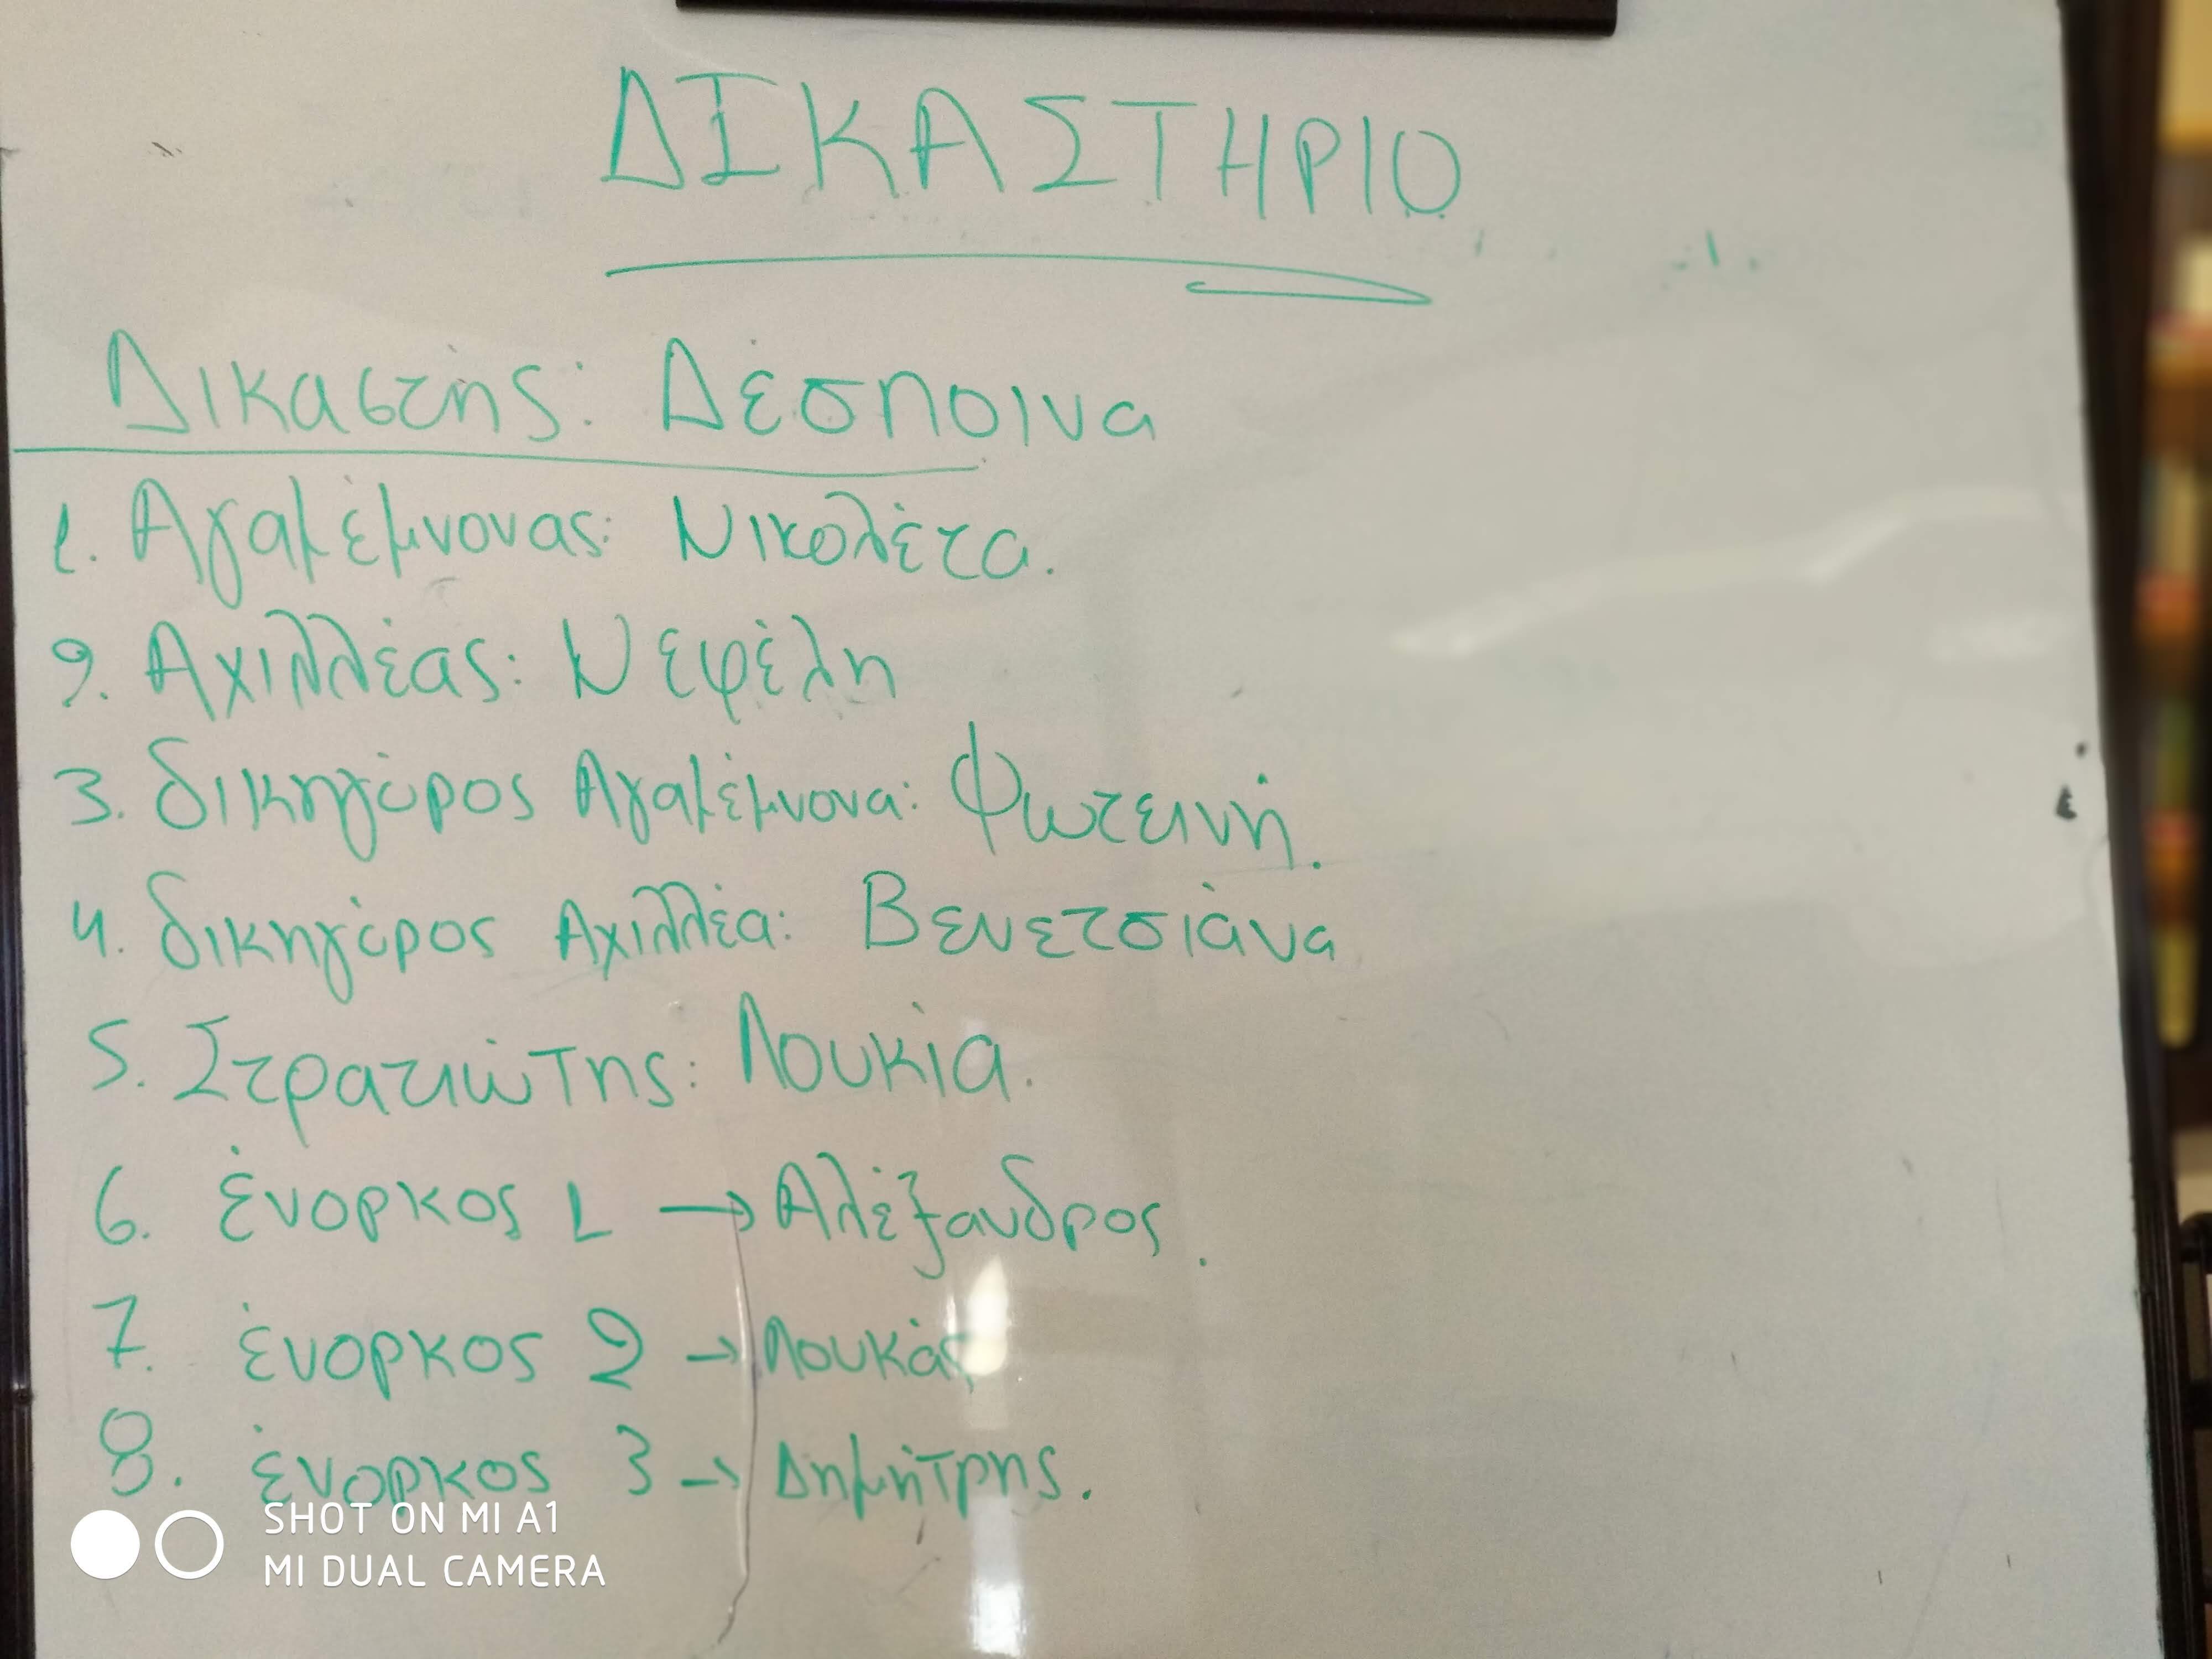 ΔΙΚΑΣΤΗΡΙΟ
Δικαστής: Δέσποινα
1. Αγαμέμνονας: Νικολέτα.
2. Αχιλλέας: Νεφέλη
3. δικηγόρος Αγαμέμνονα: Φωτεινή.
4. δικηγόρος Αχιλλέα: Βενετσιάνα
5. Στρατιώτης: Λουκία.
6. ένορκος 1 → Αλέξανδρος.
7. ένορκος 2 → Λουκάς
8. ένορκος 3 → Δημήτρης.
SHOT ON MI A1
MI DUAL CAMERA